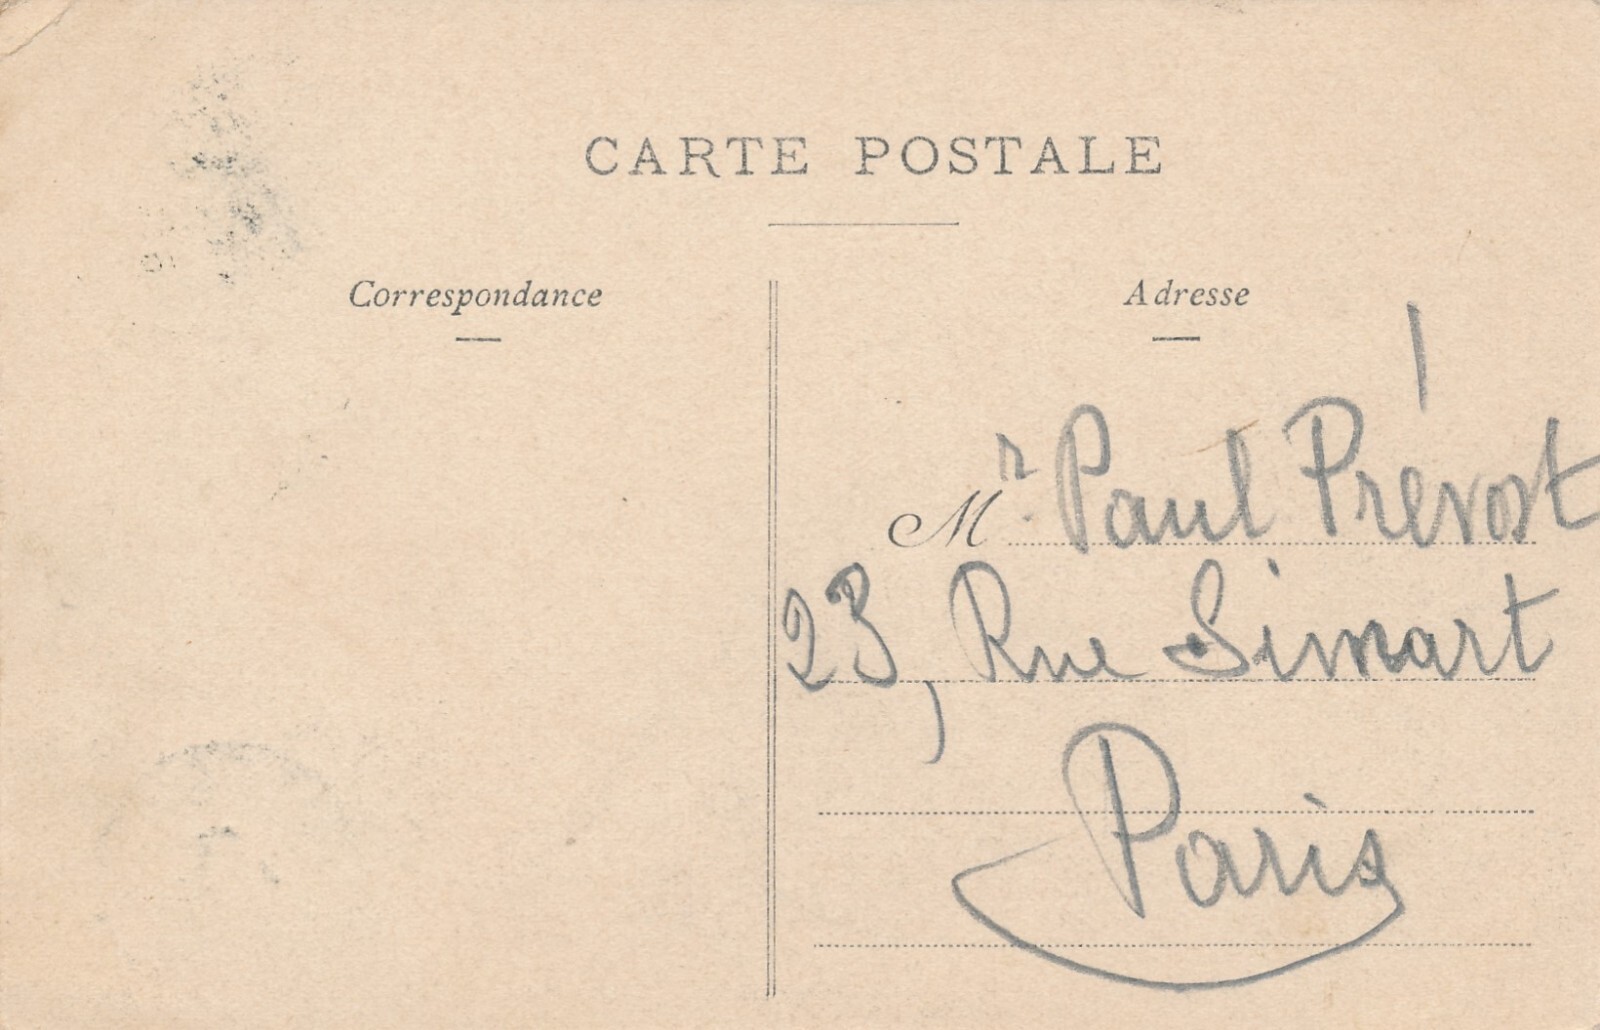 CARTE POSTALE
Correspondance
Adresse
Mr. Paul Prévost
23, Rue Simart
Paris